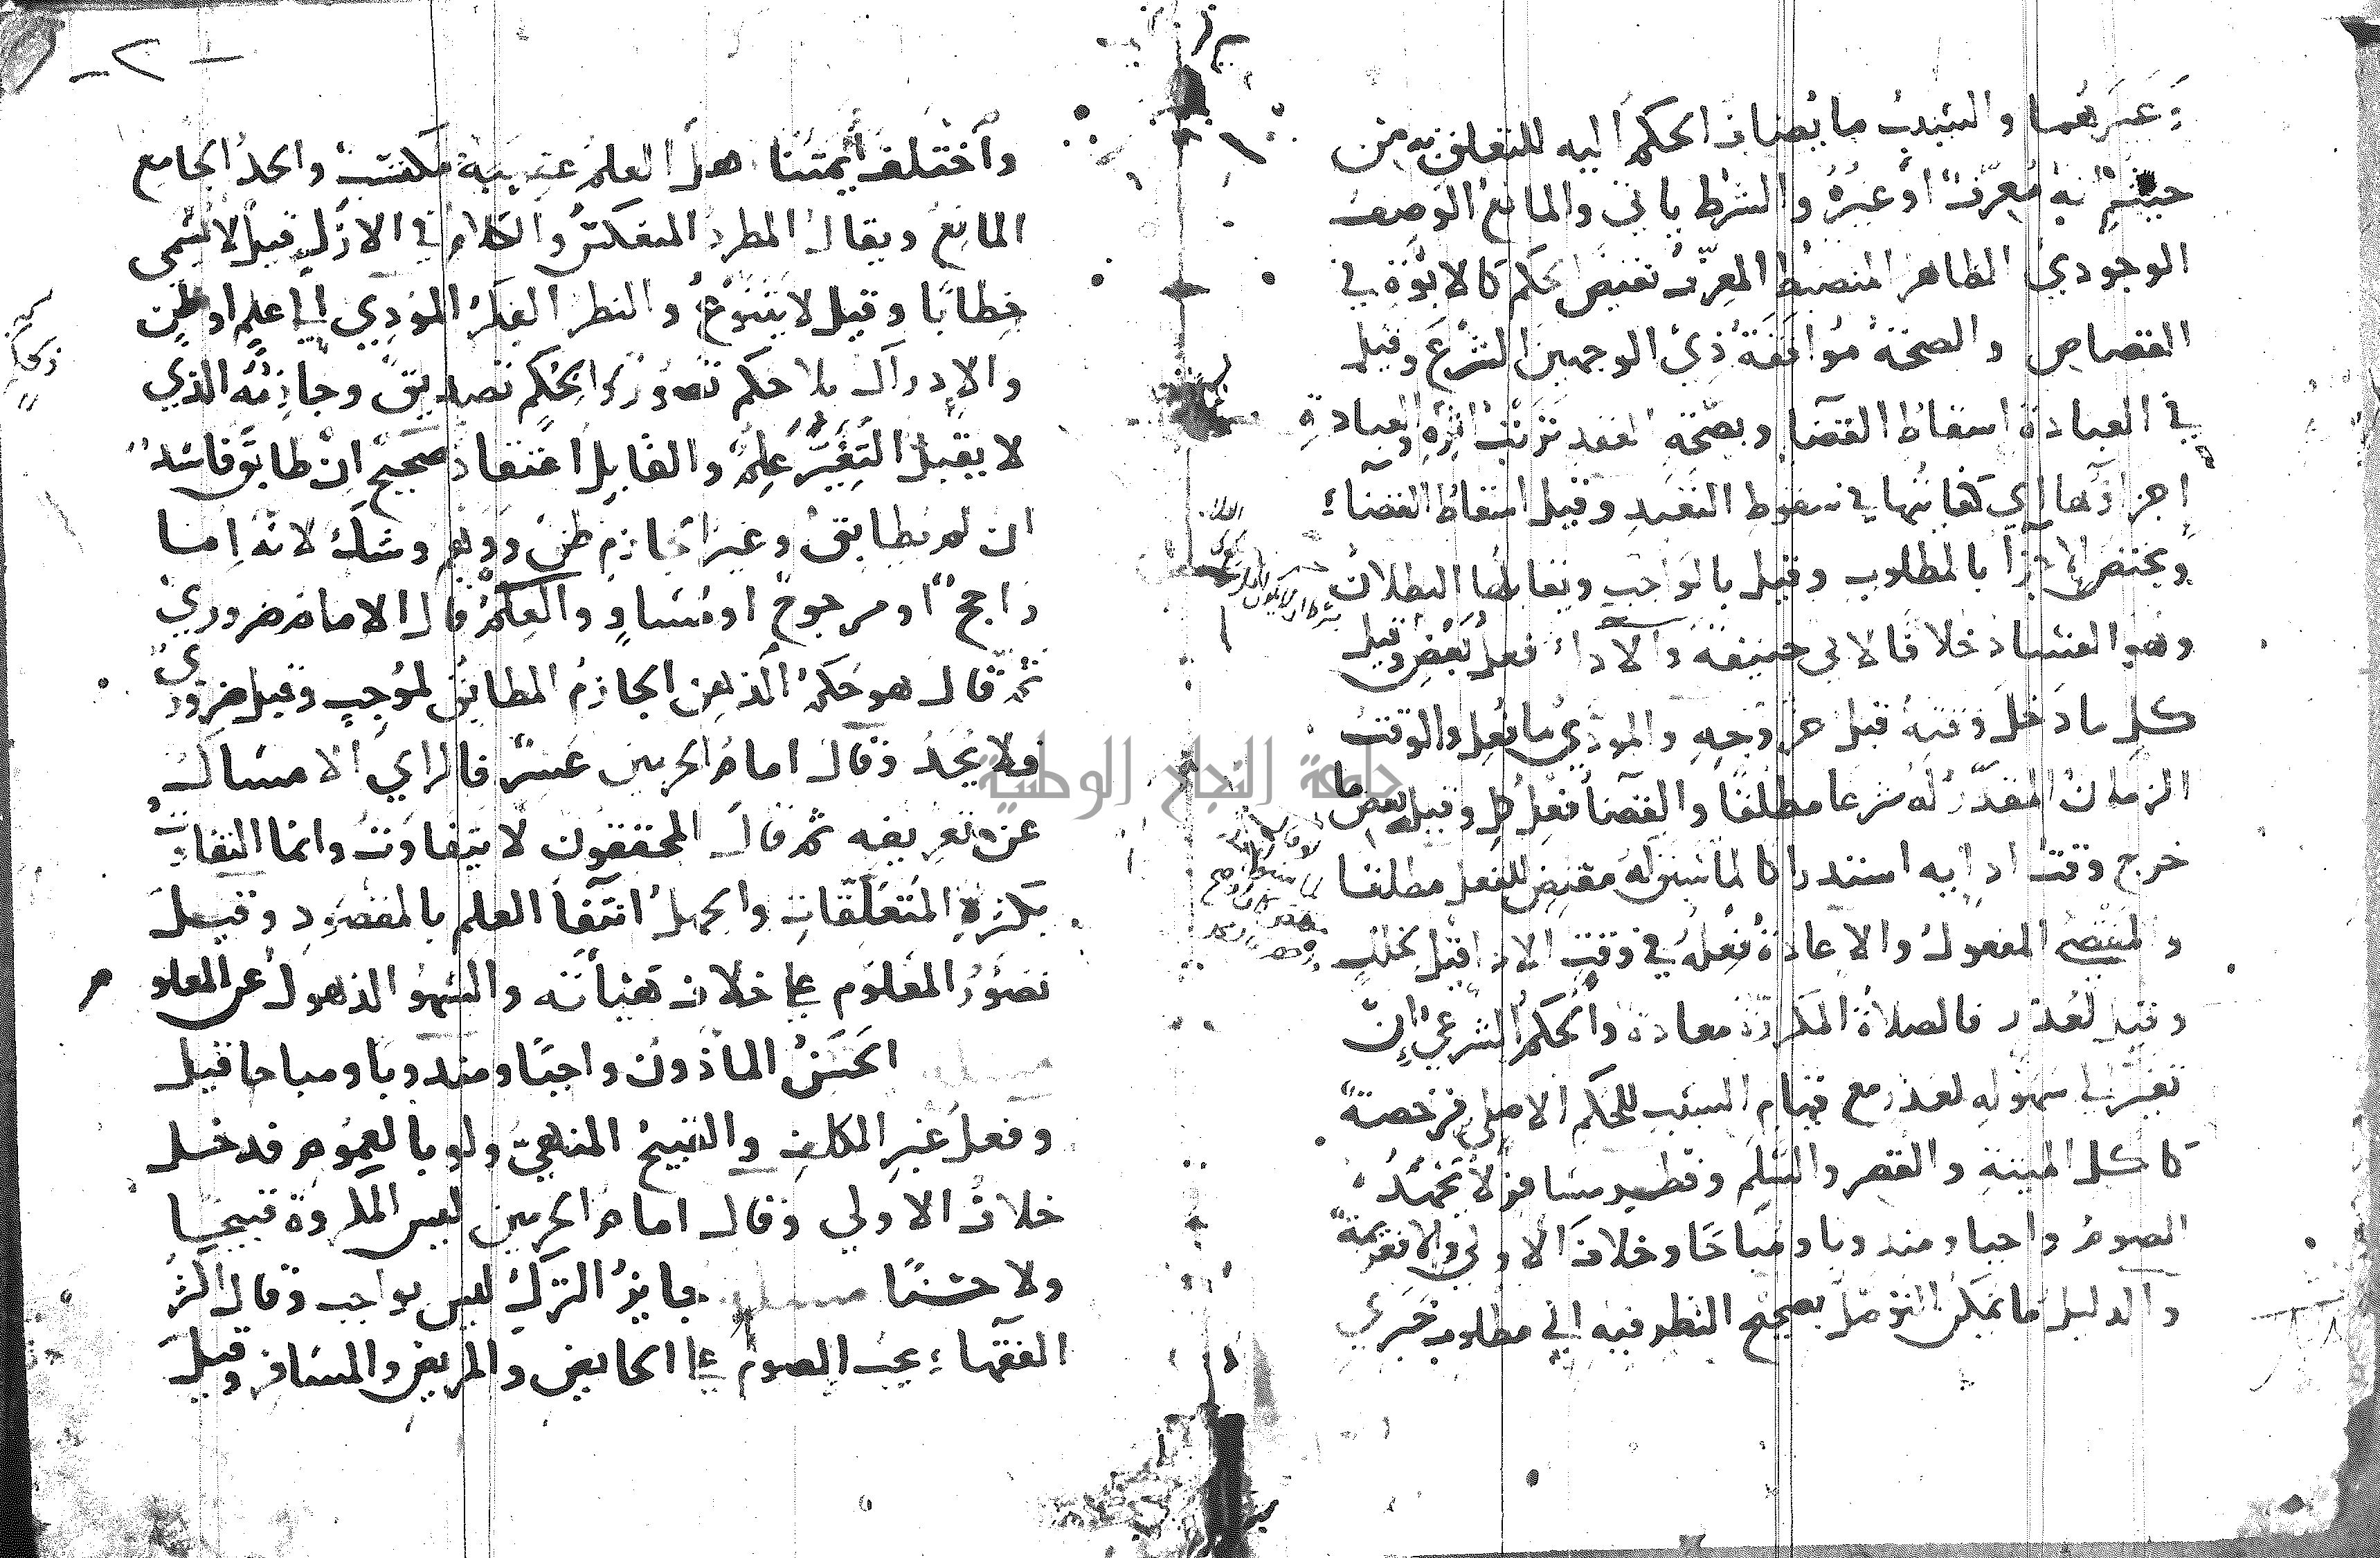 غيرهما والسبب ما يضاف الحكم اليه للتعلق به من
حيث انه معرف او غيره والشرط ياتي والمانع الوصف
الوجودي الظاهر المنضبط المعرف نقيض الحكم كالابوة في
القصاص والصحة موافقة ذي الوجهين الشرع وقيل
في العبادة اسقاط القضا وبصحة العقد ترتب اثره والعبادة
اجزاؤها اي كفايتها في سقوط التعبد وقيل اسقاط القضاء
ويختص الاجزا بالمطلوب وقيل بالواجب ويقابلها البطلان
وهو الفساد خلافا لابي حنيفة والاداء فعل بعض وقيل
كل ما دخل وقته قبل خروجه والمودى ما فعل والوقت
الزمان المقدر له شرعا مطلقا والقضا فعل كل وقيل بعض ما
خرج وقت ادايه استدراكا لما سبق له مقتض للفعل مطلقا
والمقضي المفعول والاعادة فعله في وقت الادا قيل لخلل
وقيل لعذر فالصلاة المكررة معادة والحكم الشرعي ان
تغير الى سهولة لعذر مع قيام السبب للحكم الاصلي فرخصة
كاكل الميتة والقصر والسلم وفطر مسافر لا يجهده
الصوم واجبا ومندوبا ومباحا وخلاف الاولى والا فعزيمة
والدليل ما يمكن التوصل بصحيح النظر فيه الى مطلوب خبري
- ٢ -
واختلف ايمتنا هل العلم عقيبه مكتسب والحد الجامع
المانع ويقال المطرد المنعكس والكلام في الازل قيل لا يسمى
خطابا وقيل لا يتنوع والنظر الفكر المودي الى علم او ظن
والادراك بلا حكم تصور وبحكم تصديق وجازمه الذي
لا يقبل التغير علم والقابل اعتقاد صحيح ان طابق فاسد
ان لم يطابق وغير الجازم ظن ووهم وشك لانه اما
راجح او مرجوح او مساو والعلم قال الامام ضروري
ثم قال هو حكم الذهن الجازم المطابق لموجب وقيل ضروري
ولا يحد وقال امام الحرمين عسر فالراي الامساك
عن تعريفه ثم قال المحققون لا يتفاوت وانما التفاوت
بكثرة المتعلقات والجهل انتفا العلم بالمقصود وقيل
تصور المعلوم على خلاف هيأته والسهو الذهول عن المعلوم
مسلة الحسن الماذون واجبا ومندوبا ومباحا قيل
وفعل غير المكلف والقبيح المنهي ولو بالعموم فدخل
خلاف الاولى وقال امام الحرمين ليس المكروه قبيحا
ولا حسنا مسلة جايز الترك ليس بواجب وقال اكثر
الفقهاء يجب الصوم على الحايض والمريض والمسافر وقيل
جامعة النجاح الوطنية